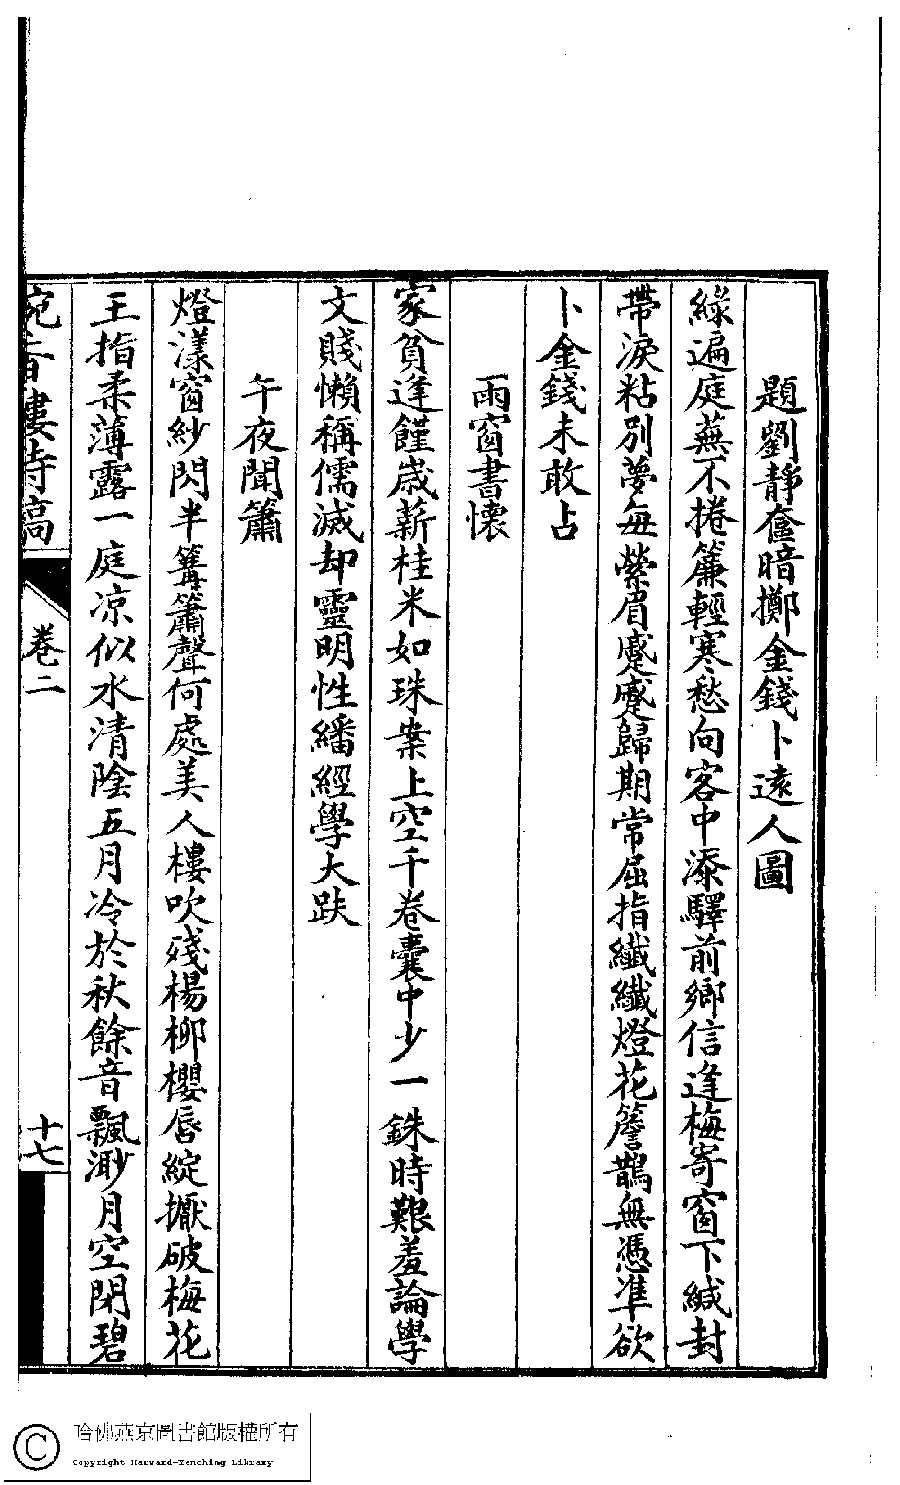 題劉靜奩暗擲金錢卜遠人圖
綠遍庭蕪不捲簾輕寒愁向客中添驛前鄉信逢梅寄窗下緘封
帶淚粘別夢每縈眉蹙蹙歸期常屈指纖纖燈花簷鵲無憑準欲
卜金錢未敢占
雨窗書懷
家貧逢饉歲薪桂米如珠案上空千卷囊中少一銖時艱羞論學
文賤懶稱儒滅却靈明性繙經學大趺
午夜聞簫
燈漾窗紗閃半篝簫聲何處美人樓吹殘楊柳櫻唇綻擫破梅花
玉指柔薄露一庭凉似水清陰五月冷於秋餘音飄渺月空閑碧
宛音樓詩稿
卷二
十七
哈佛燕京圖書館版權所有
Copyright Harvard-Yenching Library